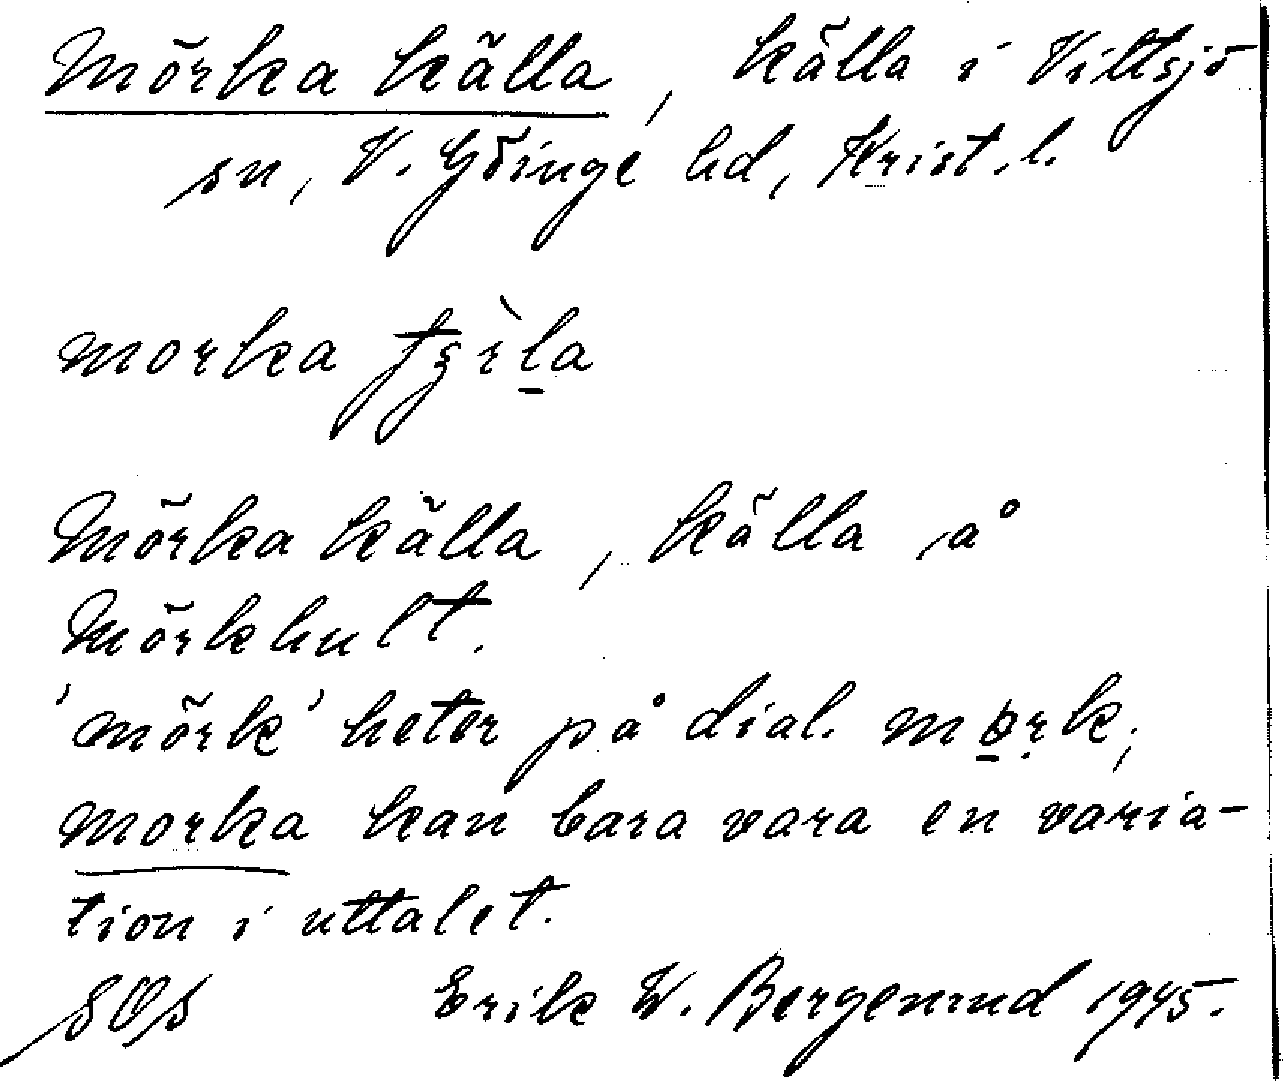 Mörka källa, källa i Vittsjö
sn, V. Göinge hd, Krist. l.
morka
Mörka källa, källa på
Mörkhult.
'mörk' heter på dial. mork;
morka kan bara vara en varia-
tion i uttalet.
Erik W. Bergenrud 1945.